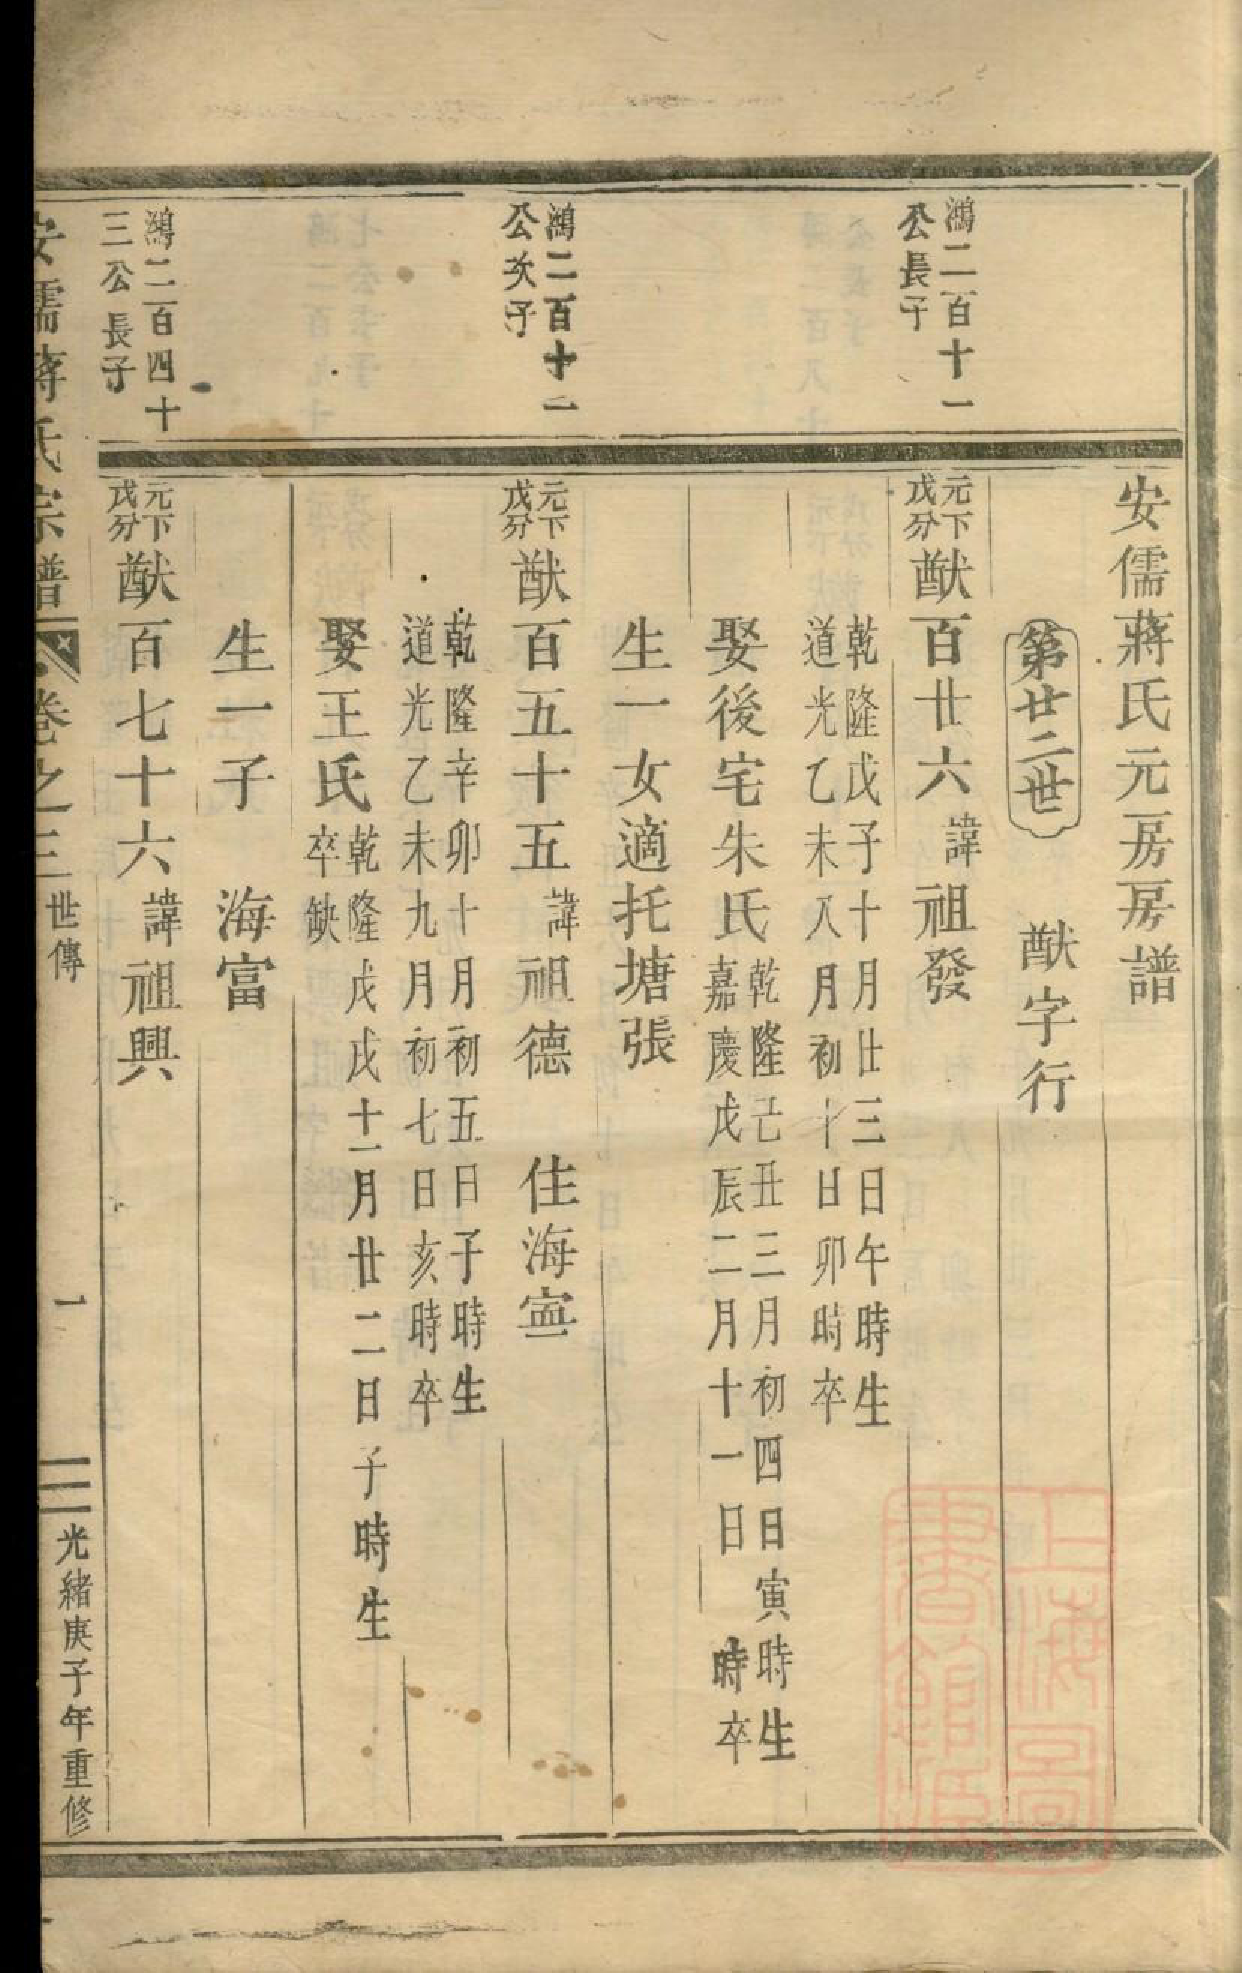 安儒蔣氏元房房譜
第廿二世 猷字行
鴻二百十一
公長子
元下
戊分
猷百廿六 諱 祖發
乾隆戊子十月廿三日午時生
道光乙未八月初十日卯時卒
娶後宅朱氏
乾隆己丑三月初四日寅時生
嘉慶戊辰二月十一日 時卒
生一女適托塘張
鴻二百十一
公次子
元下
戊分
猷百五十五 諱 祖德 住海寧
乾隆辛卯十月初五日子時生
道光乙未九月初七日亥時卒
娶王氏
乾隆戊戌十二月廿二日子時生
卒缺
生一子 海富
鴻二百四十
三公長子
元下
戊分
猷百七十六 諱 祖興
安儒蔣氏宗譜 卷之三 世傳 一 光緒庚子年重修
上海圖書館藏